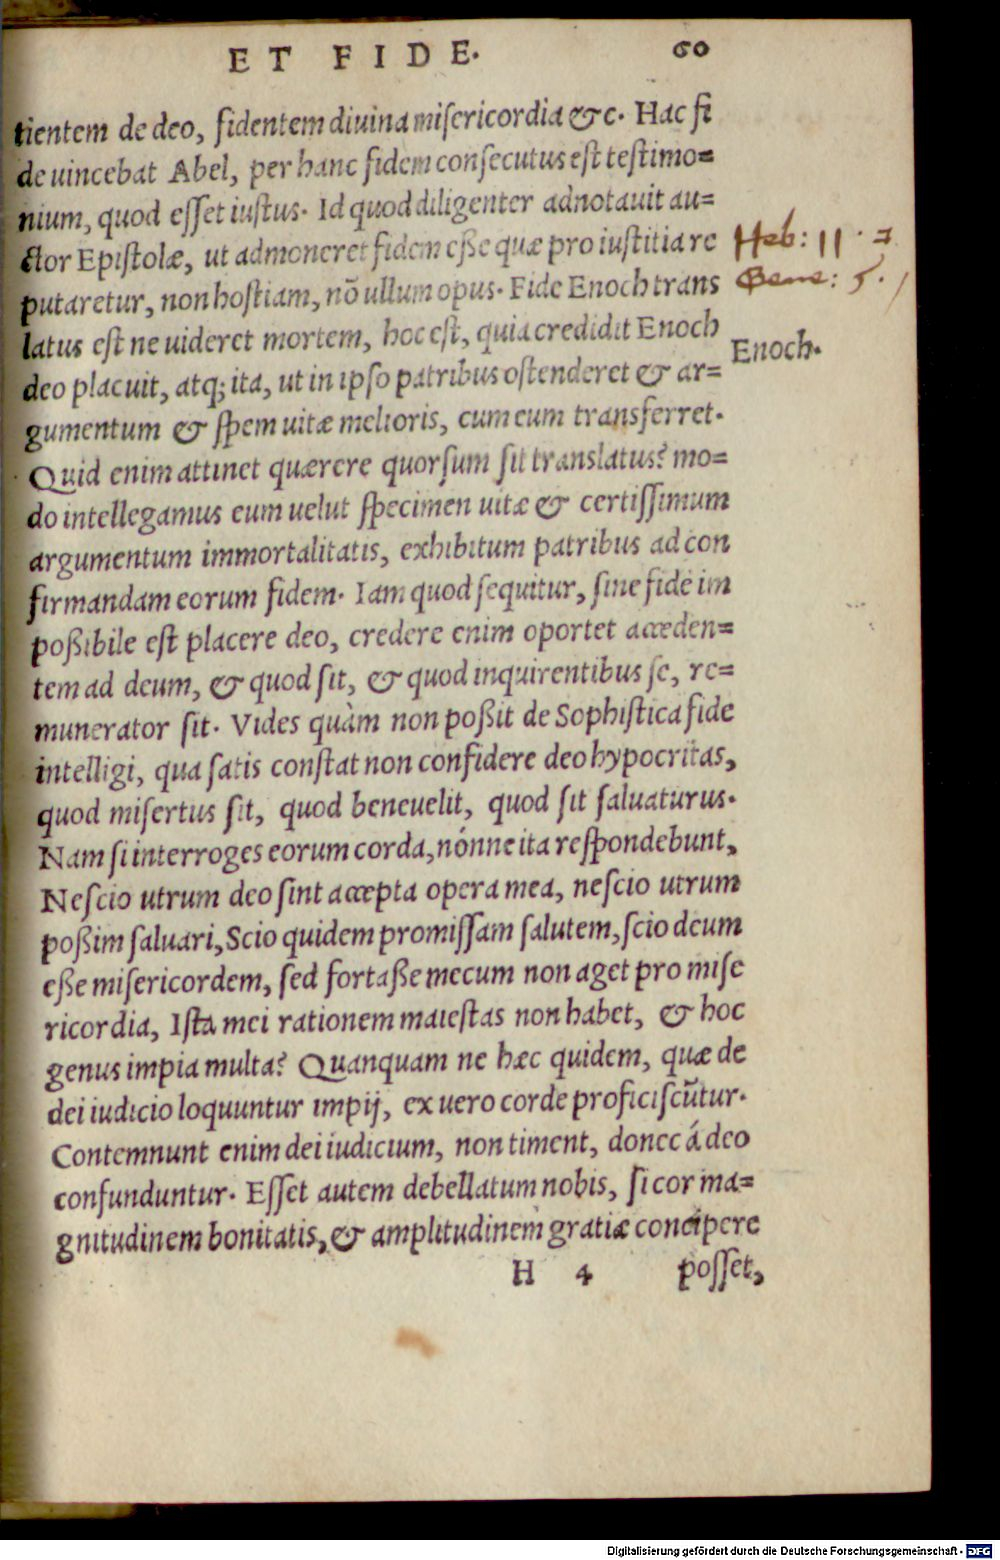 ET FIDE. 60
tientem de deo, fidentem diuina misericordia &c. Hac fi
de uincebat Abel, per hanc fidem consecutus est testimo=
nium, quod esset iustus. Id quod diligenter adnotauit au=
ctor Epistolæ, ut admoneret fidem eße quæ pro iustitia re
Heb: 11.
putaretur, non hostiam, nō ullum opus. Fide Enoch trans
Gene: 5.
latus est ne uideret mortem, hoc est, quia credidit Enoch
Enoch.
deo placuit, atq; ita, ut in ipso patribus ostenderet & ar=
gumentum & spem uitæ melioris, cum eum transferret.
Quid enim attinet quærere quorsum sit translatus? mo=
do intellegamus eum uelut specimen uitæ & certissimum
argumentum immortalitatis, exhibitum patribus ad con
firmandam eorum fidem. Iam quod sequitur, sine fide im
poßibile est placere deo, credere enim oportet acceden=
tem ad deum, & quod sit, & quod inquirentibus se, re=
munerator sit. Vides quàm non poßit de Sophistica fide
intelligi, qua satis constat non confidere deo hypocritas,
quod misertus sit, quod beneuelit, quod sit saluaturus.
Nam si interroges eorum corda, nónne ita respondebunt,
Nescio utrum deo sint accepta opera mea, nescio utrum
poßim saluari, Scio quidem promissam salutem, scio deum
eße misericordem, sed fortaße mecum non aget pro mise
ricordia, Ista mei rationem maiestas non habet, & hoc
genus impia multa? Quanquam ne hæc quidem, quæ de
dei iudicio loquuntur impij, ex uero corde proficiscūtur.
Contemnunt enim dei iudicium, non timent, donec á deo
confunduntur. Esset autem debellatum nobis, si cor ma=
gnitudinem bonitatis, & amplitudinem gratiæ concipere
H 4 posset,
Digitalisierung gefördert durch die Deutsche Forschungsgemeinschaft - DFG